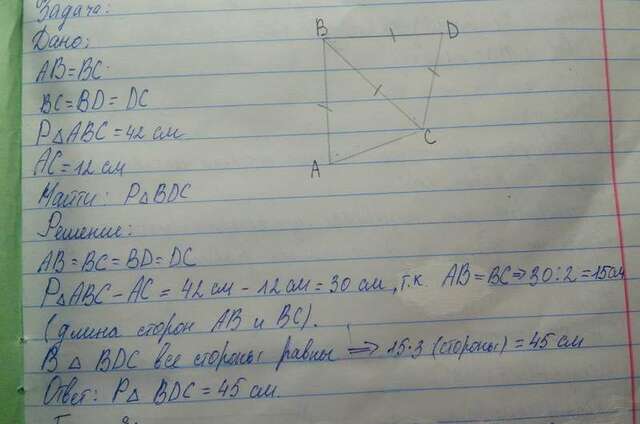 Задача:
Дано:
AB=BC
BC=BD=DC
P△ABC=42 см
AC=12 см
Найти: P△BDC
Решение:
AB=BC=BD=DC
P△ABC-AC=42 см-12 см=30 см, т.к. AB=BC⇒30:2=15см
(длина сторон AB и BC).
В △ BDC все стороны равны ⇒ 15·3 (стороны)=45 см
Ответ: P△ BDC=45 см.
B
D
C
A